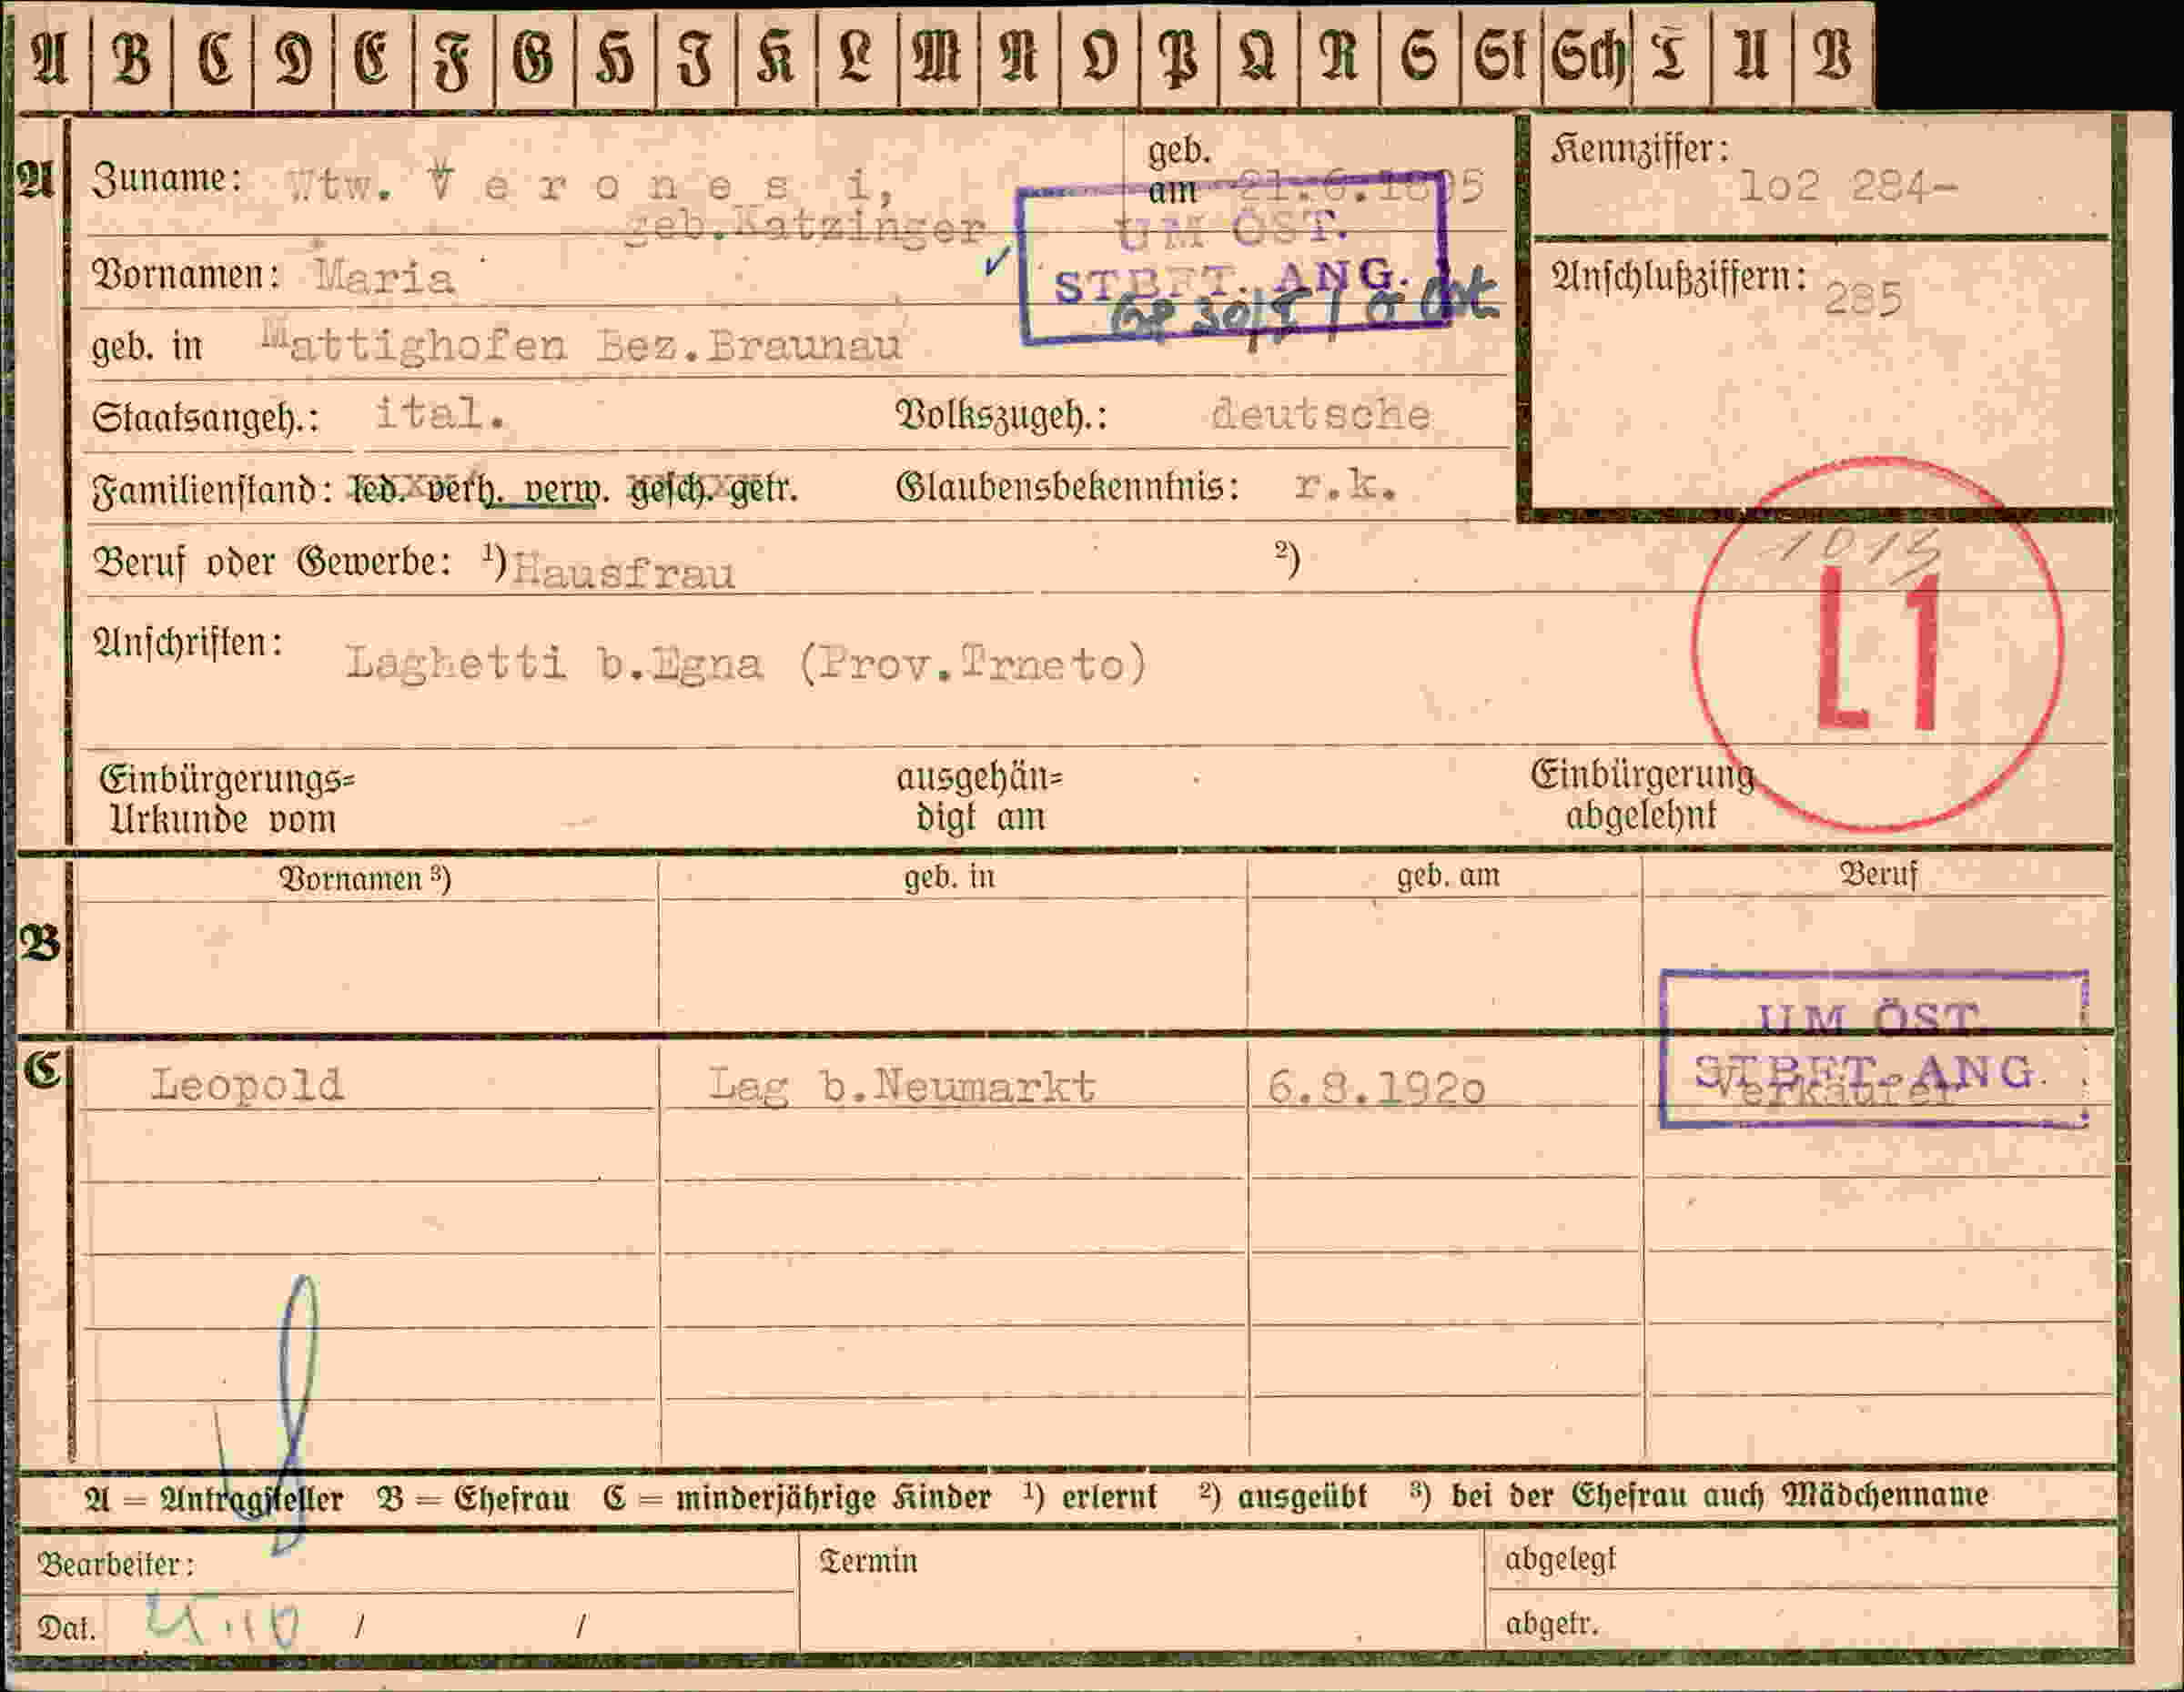 A B C D E F G H I K L M N O P Q R S St Sch T U V
A
Zuname: Wtw. V e r o n e s i,
geb.Katzinger
geb.
am 21.6.1895
Kennziffer: 1o2 284-
UM ÖST.
STBET. ANG.
Vornamen: Maria
Anschlußziffern: 285
geb. in Mattighofen Bez.Braunau
Staatsangeh.: ital. Volkszugeh.: deutsche
Familienstand: led. verh. verw. gesch. getr. Glaubensbekenntnis: r.k.
Beruf oder Gewerbe: ¹) Hausfrau ²)
L1
Anschriften: Laghetti b.Egna (Prov.Trneto)
Einbürgerungs=
Urkunde vom
ausgehän=
digt am
Einbürgerung
abgelehnt
Vornamen ³) geb. in geb. am Beruf
B
UM ÖST.
STBET. ANG.
C Leopold Lag b.Neumarkt 6.8.192o Verkäufer
A = Antragsteller B = Ehefrau C = minderjährige Kinder ¹) erlernt ²) ausgeübt ³) bei der Ehefrau auch Mädchenname
Bearbeiter: Termin abgelegt
Dat. / / abgetr.